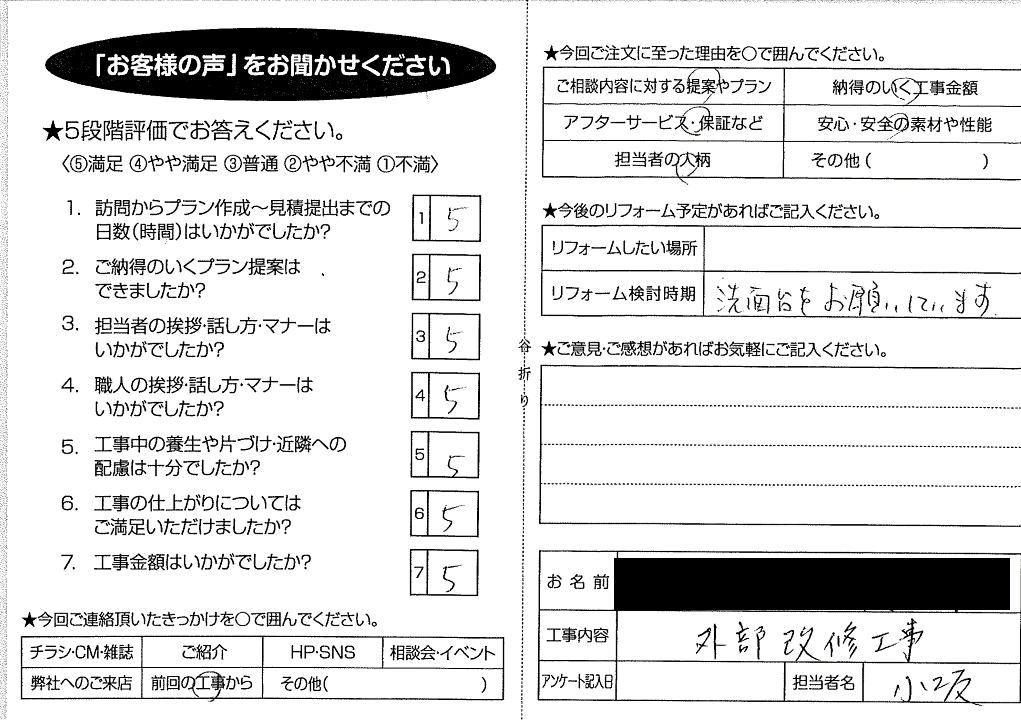 「お客様の声」をお聞かせください
★5段階評価でお答えください。
〈⑤満足 ④やや満足 ③普通 ②やや不満 ①不満〉
1. 訪問からプラン作成～見積提出までの
日数(時間)はいかがでしたか?
1 5
2. ご納得のいくプラン提案は
できましたか?
2 5
3. 担当者の挨拶・話し方・マナーは
いかがでしたか?
3 5
4. 職人の挨拶・話し方・マナーは
いかがでしたか?
4 5
5. 工事中の養生や片づけ・近隣への
配慮は十分でしたか?
5 5
6. 工事の仕上がりについては
ご満足いただけましたか?
6 5
7. 工事金額はいかがでしたか?
7 5
★今回ご連絡頂いたきっかけを○で囲んでください。
チラシ・CM・雑誌 ご紹介 HP・SNS 相談会・イベント
弊社へのご来店 前回の工事から その他( )
谷折り
★今回ご注文に至った理由を○で囲んでください。
ご相談内容に対する提案やプラン 納得のいく工事金額
アフターサービス・保証など 安心・安全の素材や性能
担当者の人柄 その他( )
★今後のリフォーム予定があればご記入ください。
リフォームしたい場所
リフォーム検討時期 洗面台をお願いしています
★ご意見・ご感想があればお気軽にご記入ください。
お名前
工事内容 外部改修工事
アンケート記入日 担当者名 小坂